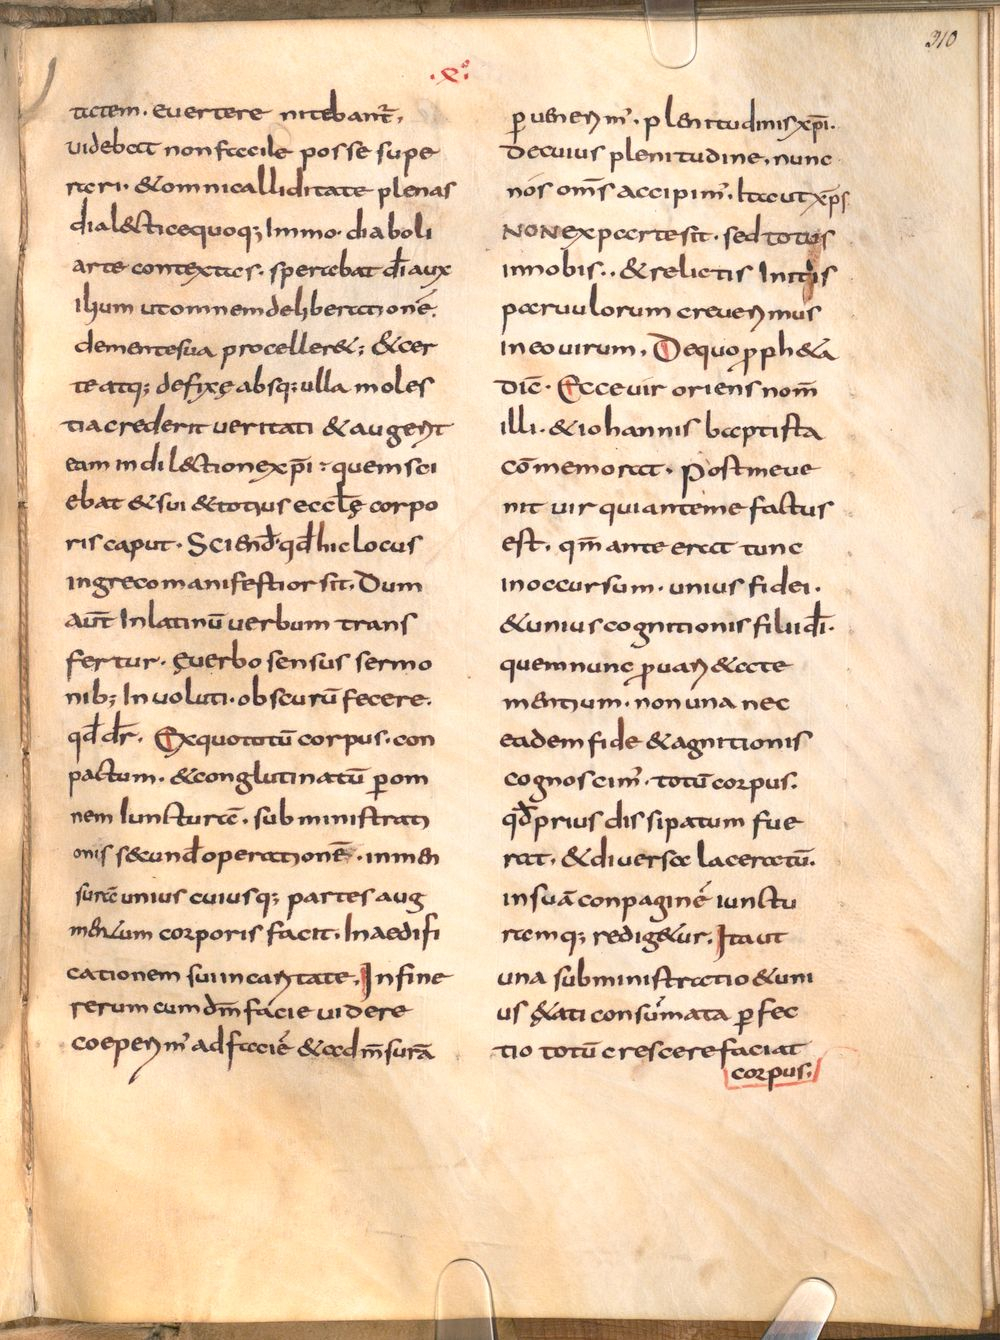 310
·x·º
tatem. evertere nitebant̄,
videbat non facile posse supe
rari. & omni calliditate plenas
dial&ticequoq; Immo. diaboli
arte contextas. sperabat d̄i aux
ilium ut omnem deliberationē.
clementesua procelleræ; & cer
te atq; defixę absq; ulla moles
tia crederit veritati & augerit
eam in dil&tione xp̄i: quem sci
ebat & sui & totius eccl̄ę corpo
ris caput. Sciend̄ qd̄ hic locus
in greco manifestior sit. Dum
aut̄ In latinū verbum trans
fertur. ęverbo sensus sermo
nib; Involuti. obscurū fecere.
qd̄ dr̄. Ex quo totū corpus. con
pactum. & conglutinatū p om
nem Iuncturā. subministrati
onis secund̄ operationē. in men
surā unius cuiusq; partes aug
mentum corporis facit. In aedifi
cationem sui in caritate. In fine
rerum cum dn̄m facie videre
coeperim' ad faciē & ad m̄surā
pvenerim'. plenitudinis xp̄i.
De cuius plenitudine, nunc
nós om̄s accipim'. Ita ut xp̄s
NON ex parte sit. sed totus
in nobis.. & relictis Initiis
parvulorum creverimus
in eo virum. De quo proph&a
dic̄. Ecce vir oriens nom̄
illi. & iohannis baptista
cōmemorat. Post me ve
nit vir qui ante me factus
est. qm̄ ante erat tunc
in occursum. unius fidei.
& unius cognitionis filii d̄i.
quem nunc p varietate
mentium. non una nec
eadem fide & agnitionis
cognoscim'. totū corpus.
qd̄ prius dissipatum fue
rat. & diverse laceratū.
in suā conpaginē iunctu
ramq; redig&ur. Ita ut
una subministratio & uni
us &ati consūmata p fec
tio totū crescere faciat
corpus.